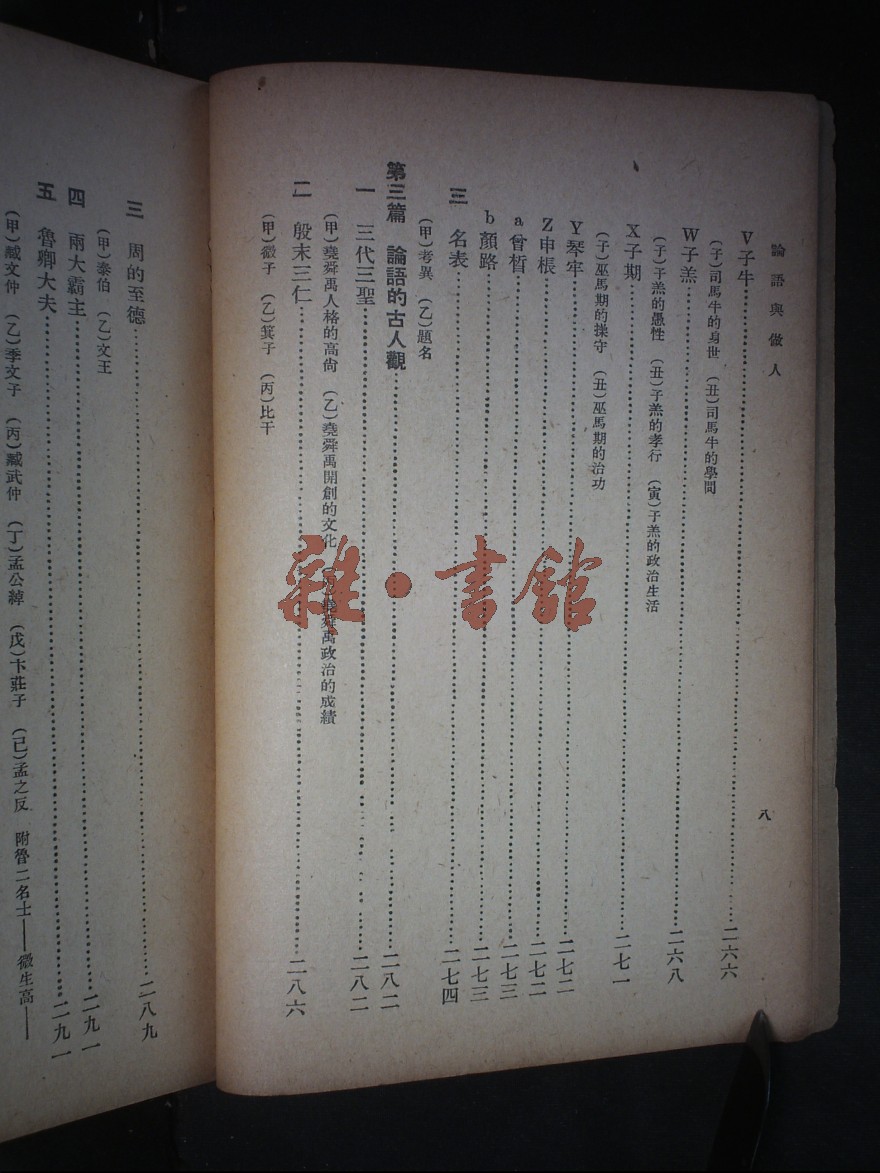 論語與做人
八
V子牛……二六六
(子)司馬牛的身世 (丑)司馬牛的學問
W子羔……二六八
(子)子羔的愚性 (丑)子羔的孝行 (寅)子羔的政治生活
X子期……二七一
(子)巫馬期的操守 (丑)巫馬期的治功
Y琴牢……二七二
Z申棖……二七二
a曾皙……二七三
b顏路……二七三
三 名表……二七四
(甲)考異 (乙)題名
第三篇 論語的古人觀……二八二
一 三代三聖……二八二
(甲)堯舜禹人格的高尙 (乙)堯舜禹開創的文化 (丙)堯舜禹政治的成績
二 殷末三仁……二八六
(甲)微子 (乙)箕子 (丙)比干
三 周的至德……二八九
(甲)泰伯 (乙)文王
四 兩大霸主……二九一
五 魯卿大夫……二九一
(甲)臧文仲 (乙)季文子 (丙)臧武仲 (丁)孟公綽 (戊)卞莊子 (己)孟之反 附魯二名士——微生高——
雜·書館